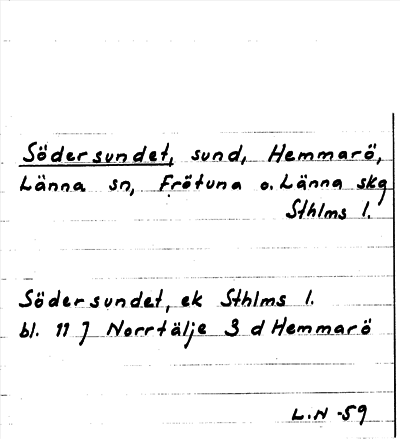 Södersundet, sund, Hemmarö,
Länna sn, Frötuna o. Länna skg
Sthlms l.
Södersundet, ek Sthlms l.
bl. 11 J Norrtälje 3 d Hemmarö
L.N -59